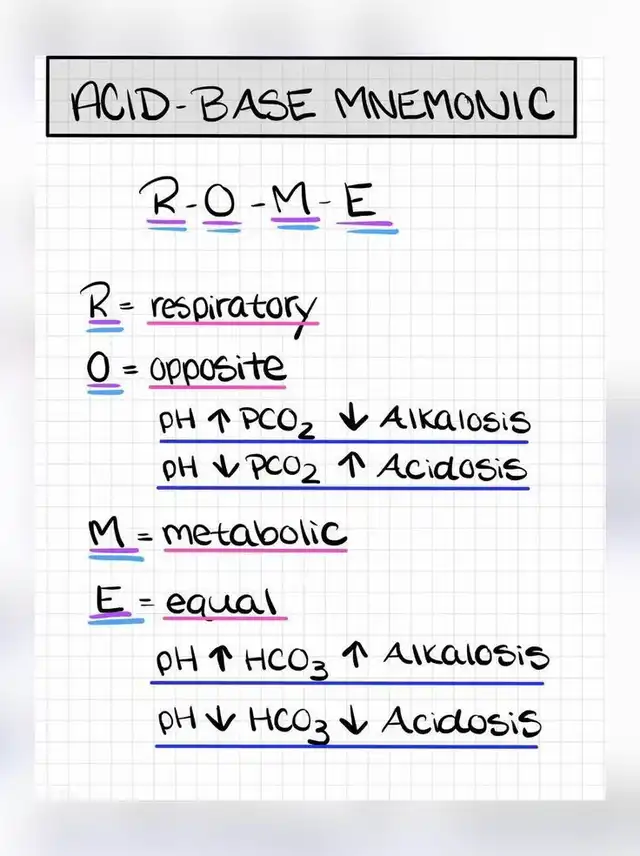 ACID-BASE MNEMONIC
R-O-M-E
R = respiratory
O = opposite
pH ↑ PCO₂ ↓ Alkalosis
pH ↓ PCO₂ ↑ Acidosis
M = metabolic
E = equal
pH ↑ HCO₃ ↑ Alkalosis
pH ↓ HCO₃ ↓ Acidosis